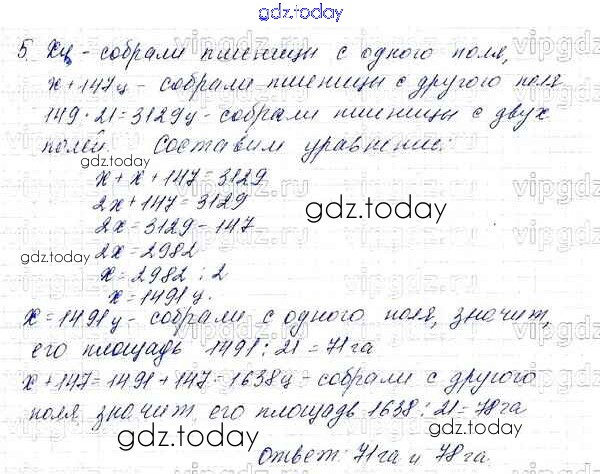 gdz.today
5. хц - собрали пшеницы с одного поля,
х+147ц - собрали пшеницы с другого поля
149 · 21 = 3129ц - собрали пшеницы с двух
полей. Составим уравнение:
gdz.today
х + х + 147 = 3129
2х + 147 = 3129
gdz.today
2х = 3129 - 147
gdz.today
2х = 2982
х = 2982 : 2
х = 1491 ц.
х = 1491ц - собрали с одного поля, значит,
его площадь 1491 : 21 = 71га
gdz.today
х+147 = 1491 + 147 = 1638ц - собрали с другого
поля, значит, его площадь 1638 : 21 = 78га
gdz.today
gdz.today
Ответ: 71га и 78га.
vipgdz.ru